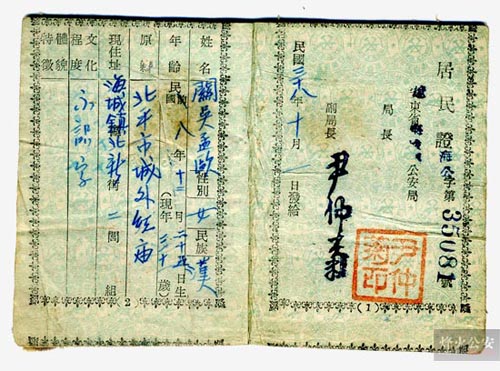 居民證 海公字第35081號
遼東省 公安局
局長
副局長 尹仲
民國卅八年十月 日發給
尹仲印
(1)
姓名 關吳孟 性別 女 民族 漢
年齡 民國八年十二月二十五日生(現年三十歲)
原籍 北平市城外 庙
現住址 海城鎮北新街二閭 組
文化程度 不識字
體貌特徵
2
烽火公安